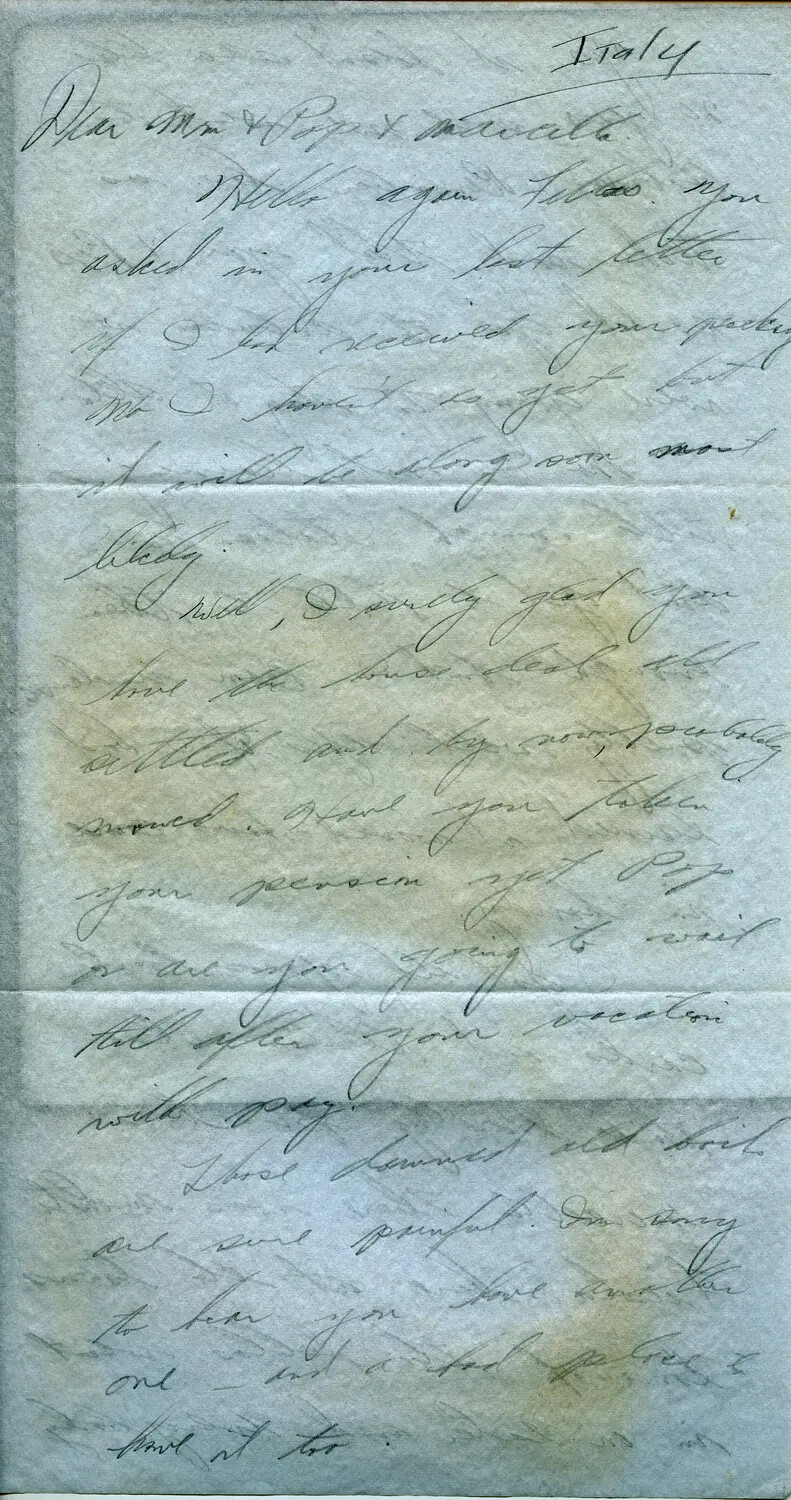 Italy
Dear Mom & Pop & Marcella.
Hello again Fellas. You
asked in your last letter
if I had received your package
No I haven't as yet but
it will be along soon most
likely.
Well, I surely glad you
have the house deal all
settled and by now, probably
moved. Have you taken
your pension yet Pop
or are you going to wait
till after your vacation
with pay.
Those damned old boils
are sure painful. Im sorry
to hear you have another
one – and a bad place to
have it too.